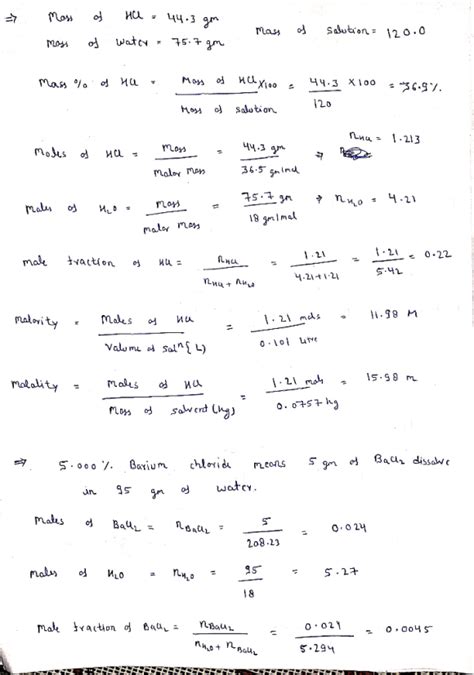 ⇒ Mass of HCl = 44.3 gm
Mass of water = 75.7 gm Mass of solution = 120.0
Mass % of HCl = Mass of HCl / Mass of solution × 100 = 44.3 / 120 × 100 = 36.9%
Moles of HCl = Mass / Molar Mass = 44.3 gm / 36.5 gm/mol ⇒ nHCl = 1.213
Moles of H2O = Mass / Molar Mass = 75.7 gm / 18 gm/mol ⇒ nH2O = 4.21
Mole fraction of HCl = nHCl / nHCl + nH2O = 1.21 / 4.21+1.21 = 1.21 / 5.42 = 0.22
Molarity = Moles of HCl / Volume of solⁿ (L) = 1.21 mols / 0.101 litre = 11.98 M
Molality = Moles of HCl / Mass of solvent (kg) = 1.21 mols / 0.0757 kg = 15.98 m
⇒ 5.000% Barium chloride means 5 gm of BaCl2 dissolve
in 95 gm of water.
Moles of BaCl2 = nBaCl2 = 5 / 208.23 = 0.024
Moles of H2O = nH2O = 95 / 18 = 5.27
Mole fraction of BaCl2 = nBaCl2 / nH2O + nBaCl2 = 0.024 / 5.294 = 0.0045